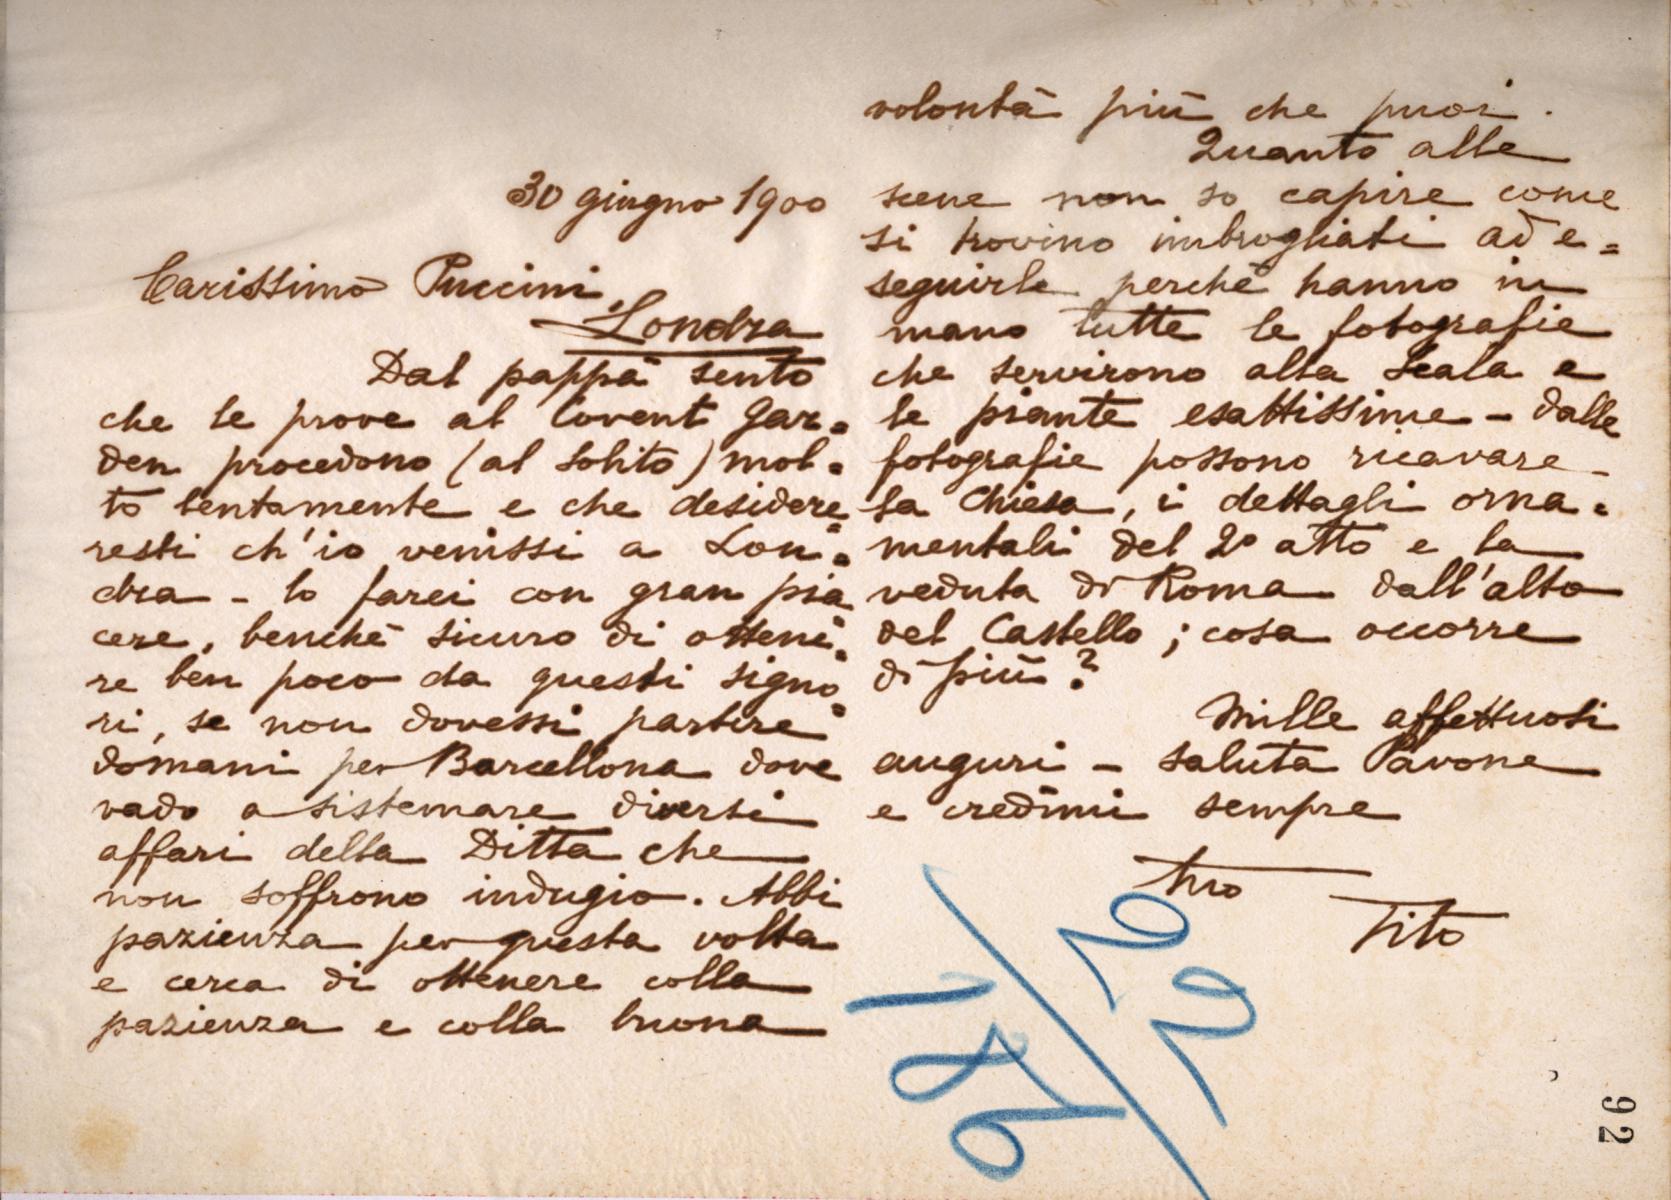 30 giugno 1900
Carissimo Puccini
Londra
Dal pappà sento
che le prove al Covent Gar=
den procedono (al solito) mol=
to lentamente e che desidere=
resti ch'io venissi a Lon=
dra – lo farei con gran pia=
cere, benchè sicuro di ottene=
re ben poco da questi signo=
ri, se non dovessi partire
domani per Barcellona dove
vado a sistemare diversi
affari della Ditta che
non soffrono indugio. Abbi
pazienza per questa volta
e cerca di ottenere colla
pazienza e colla buona
volontà più che puoi.
Quanto alle
scene non so capire come
si trovino imbrogliati ad e=
seguirle perchè hanno in
mano tutte le fotografie
che servirono alla Scala e
le piante esattissime – dalle
fotografie possono ricavare
la Chiesa, i dettagli orna=
mentali del 2º atto e la
veduta di Roma dall'alto
del Castello; cosa occorre
di più?
Mille affettuosi
auguri – saluta Pavone
e credimi sempre
tuo
Tito
22
186
92